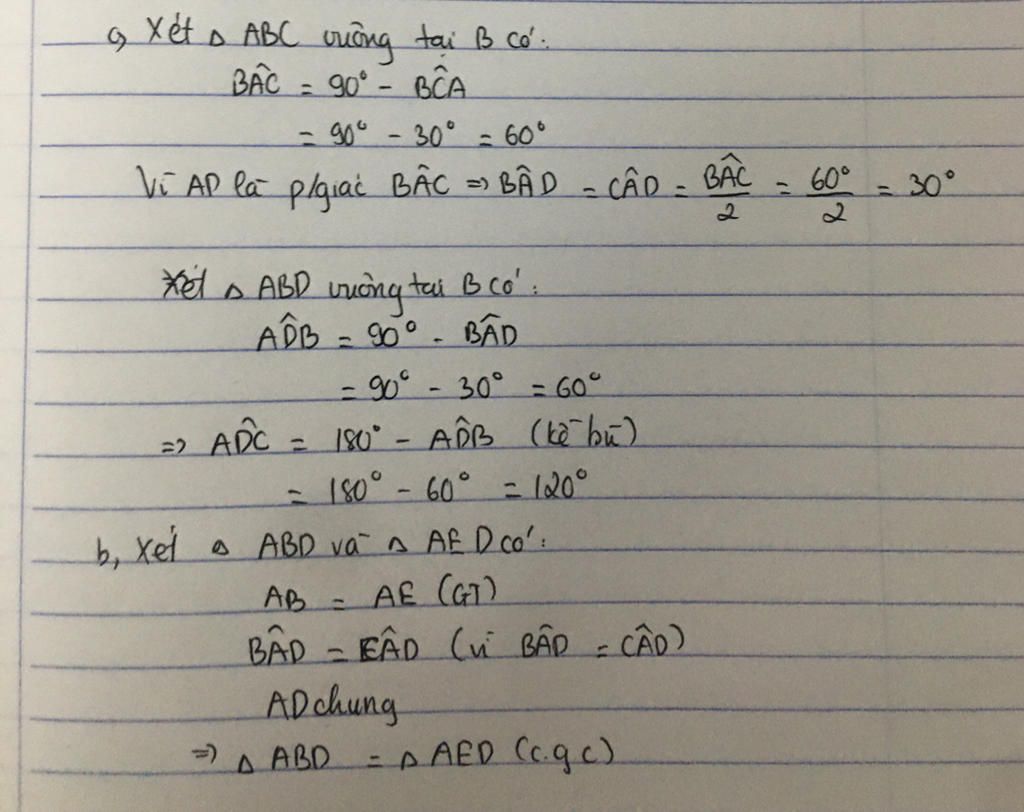 a, Xét △ ABC vuông tại B có:
BÂC = 90° - BĈA
= 90° - 30° = 60°
Vì AD là p/giác BÂC => BÂD = CÂD = BÂC/2 = 60°/2 = 30°
Xét △ ABD vuông tại B có:
AD̂B = 90° - BÂD
= 90° - 30° = 60°
=> AD̂C = 180° - AD̂B (kề bù)
= 180° - 60° = 120°
b, Xét △ ABD và △ AED có:
AB = AE (GT)
BÂD = EÂD (vì BÂD = CÂD)
AD chung
=> △ ABD = △ AED (c.g c)